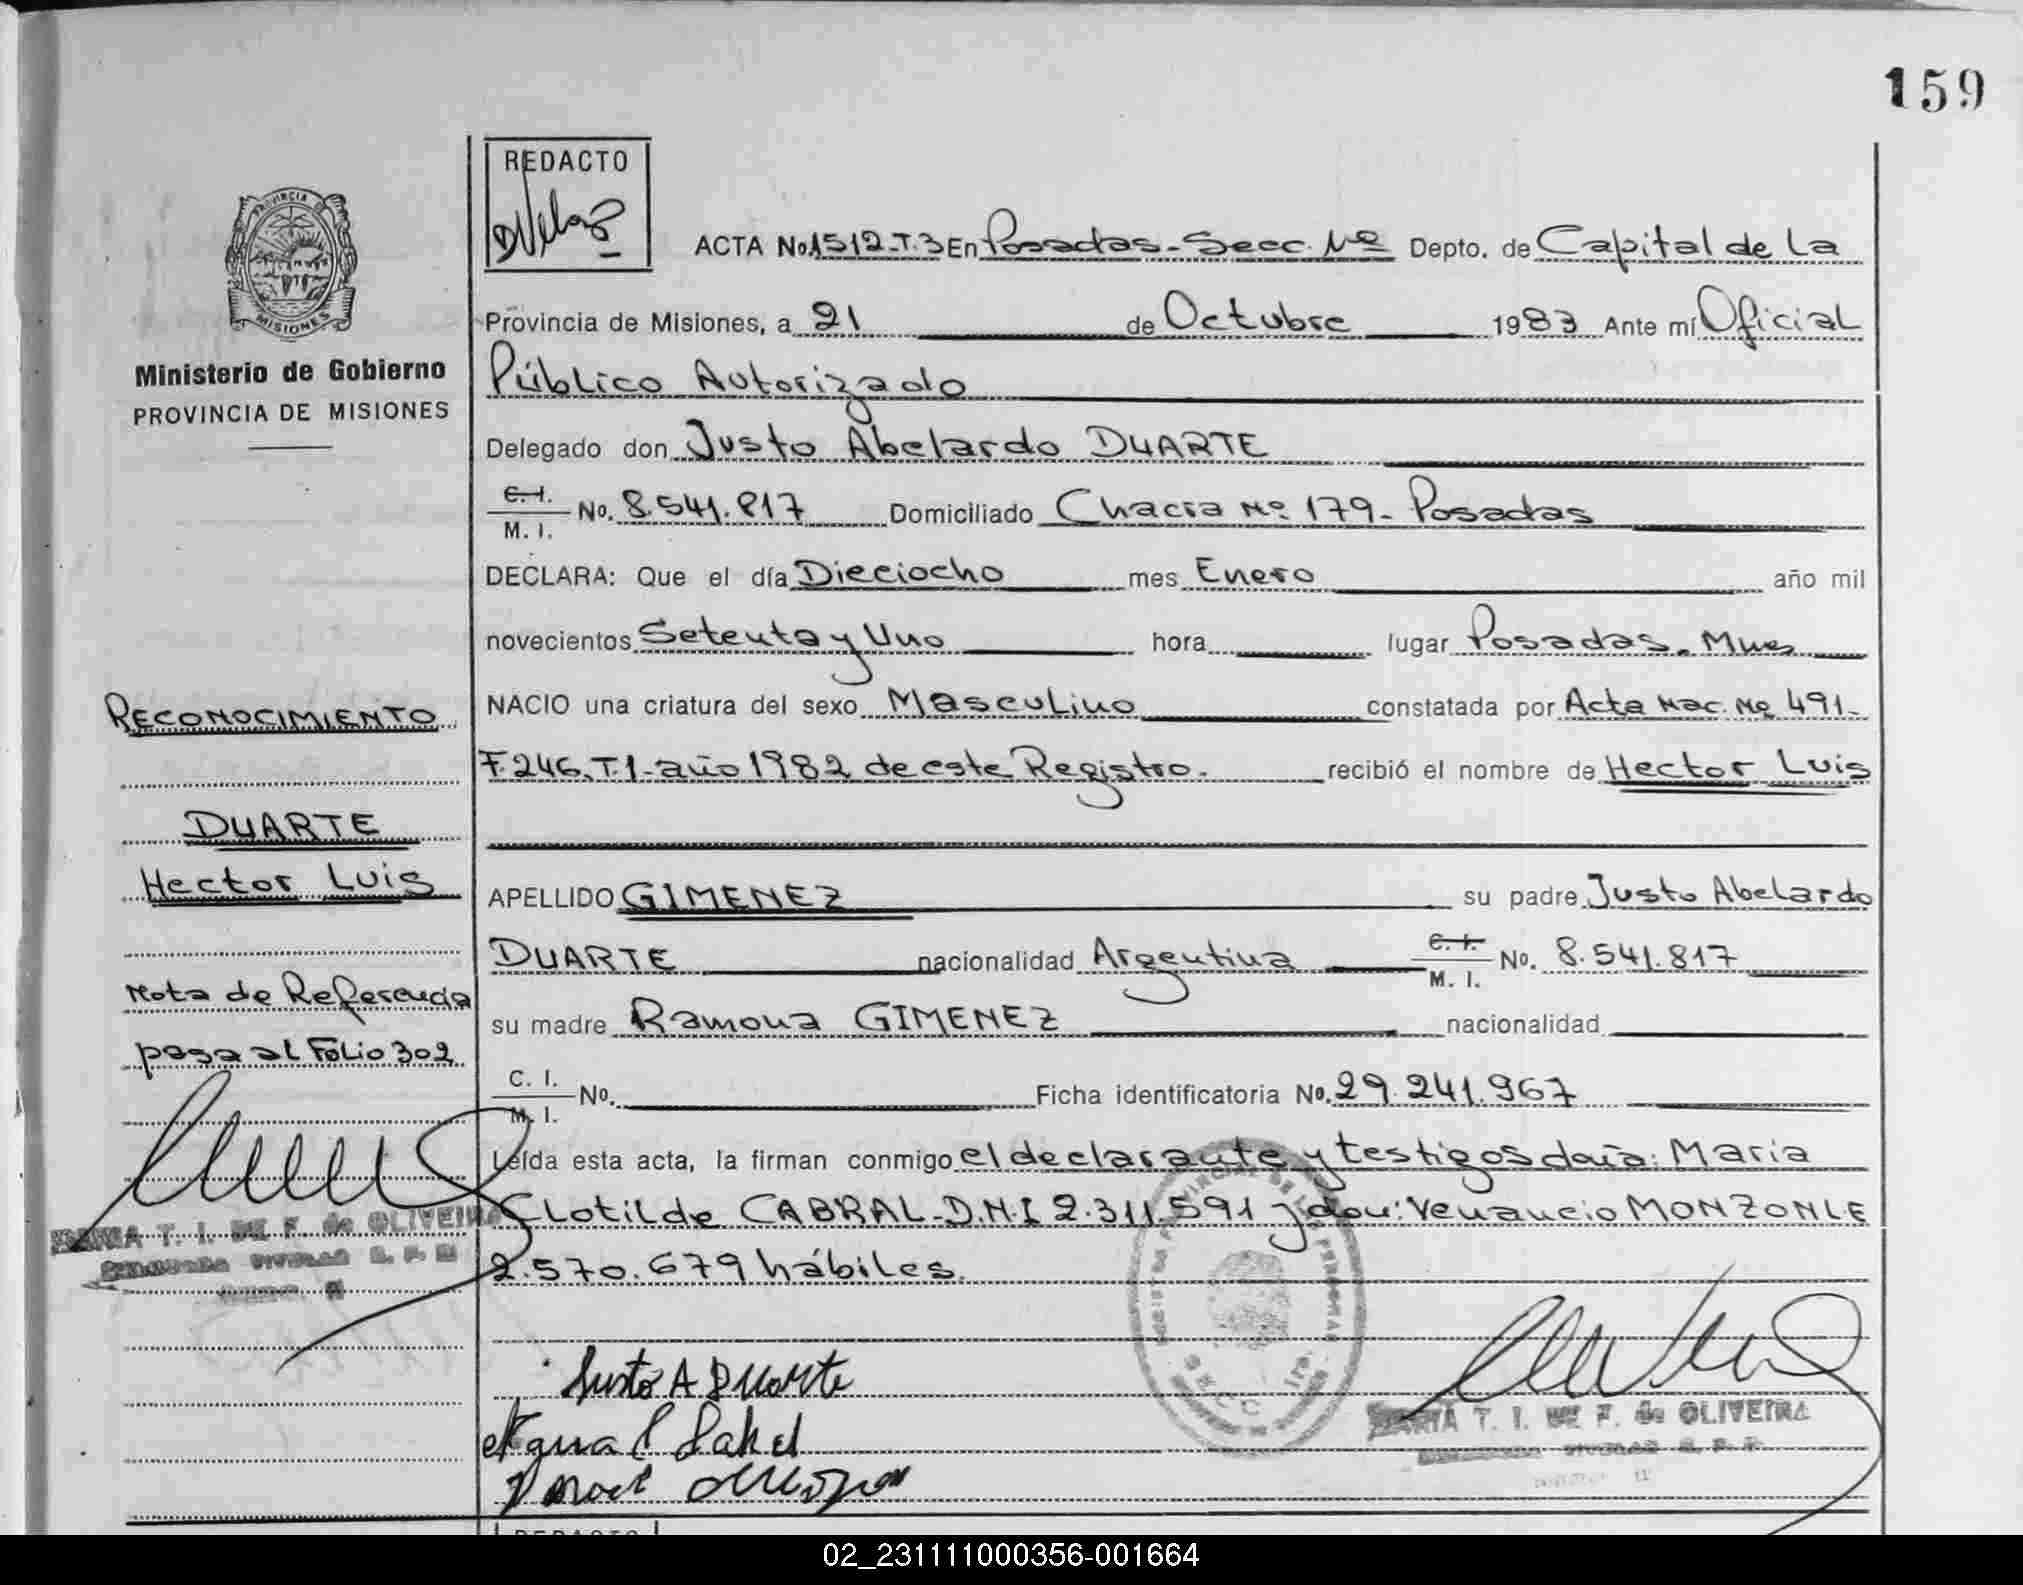 159
REDACTO
PROVINCIA DE
MISIONES
Ministerio de Gobierno
PROVINCIA DE MISIONES
ACTA No 1512-T.3 En Posadas-Secc. Nº Depto. de Capital de La
Provincia de Misiones, a 21 de Octubre 1983 Ante mí Oficial
Público Autorizado
Delegado don Justo Abelardo DUARTE
C. I.
M. I. No. 8.541.817 Domiciliado Chacra Nº 179- Posadas
DECLARA: Que el día Dieciocho mes Enero año mil
novecientos Setenta y Uno hora lugar Posadas. Mnes
NACIO una criatura del sexo Masculino constatada por Acta Nac. Nº 491-
F.246.T.1-año 1982 de este Registro. recibió el nombre de Hector Luis
APELLIDO GIMENEZ su padre Justo Abelardo
DUARTE nacionalidad Argentina C. I. M. I. No. 8.541.817
su madre Ramona GIMENEZ nacionalidad
C. I.
M. I. No. Ficha identificatoria No. 29.241.967
Leída esta acta, la firman conmigo el declarante y testigos doña: Maria
Clotilde CABRAL-D.N.I 2.311.591 y don: Venancio MONZON LE
2.570.679 hábiles.
Justo A Duarte
MARIA T. I. DE F. de OLIVEIRA
RECONOCIMIENTO
DUARTE
Hector Luis
Nota de Referencia
pasa al Folio 302
MARIA T. I. DE F. de OLIVEIRA
REDACTO
02_231111000356-001664